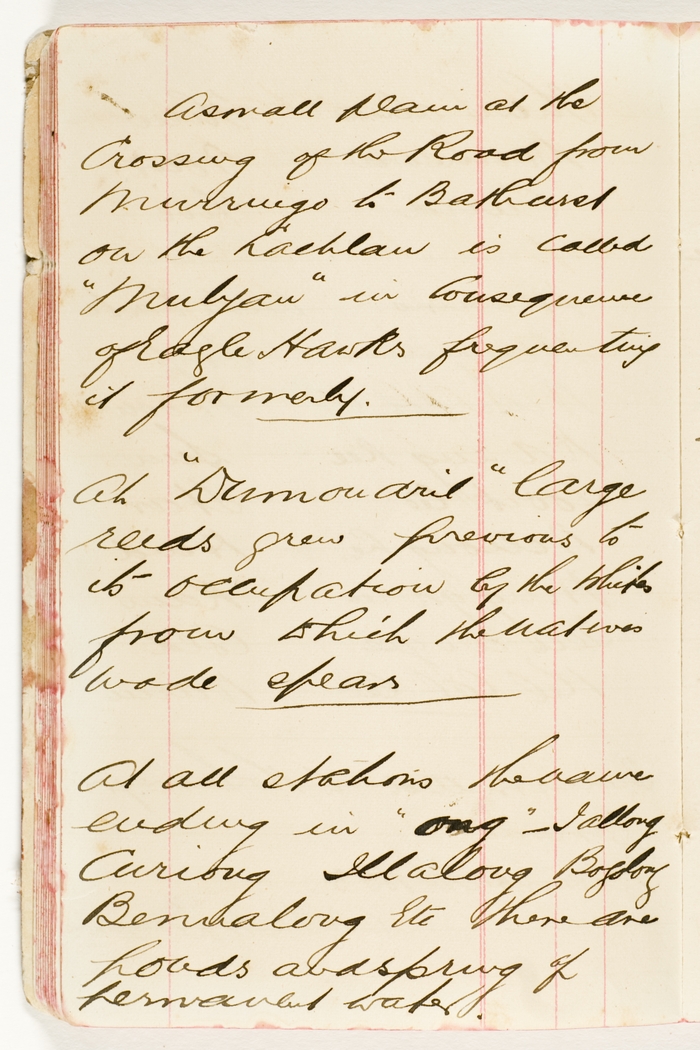 A small plain at the
Crossing of the Road from
Murringo to Bathurst
on the Lachlan is called
"Mulyan" in Consequence
of Eagle Hawks frequenting
it formerly.
At "Dumondril" large
reeds grew previous to
its occupation by the Whites
from which the natives
made spears
At all stations the name
ending in "ong" - Jallong
Curiong Illalong Bogolong
Bennalong Etc There are
ponds and spring of
permanent water.